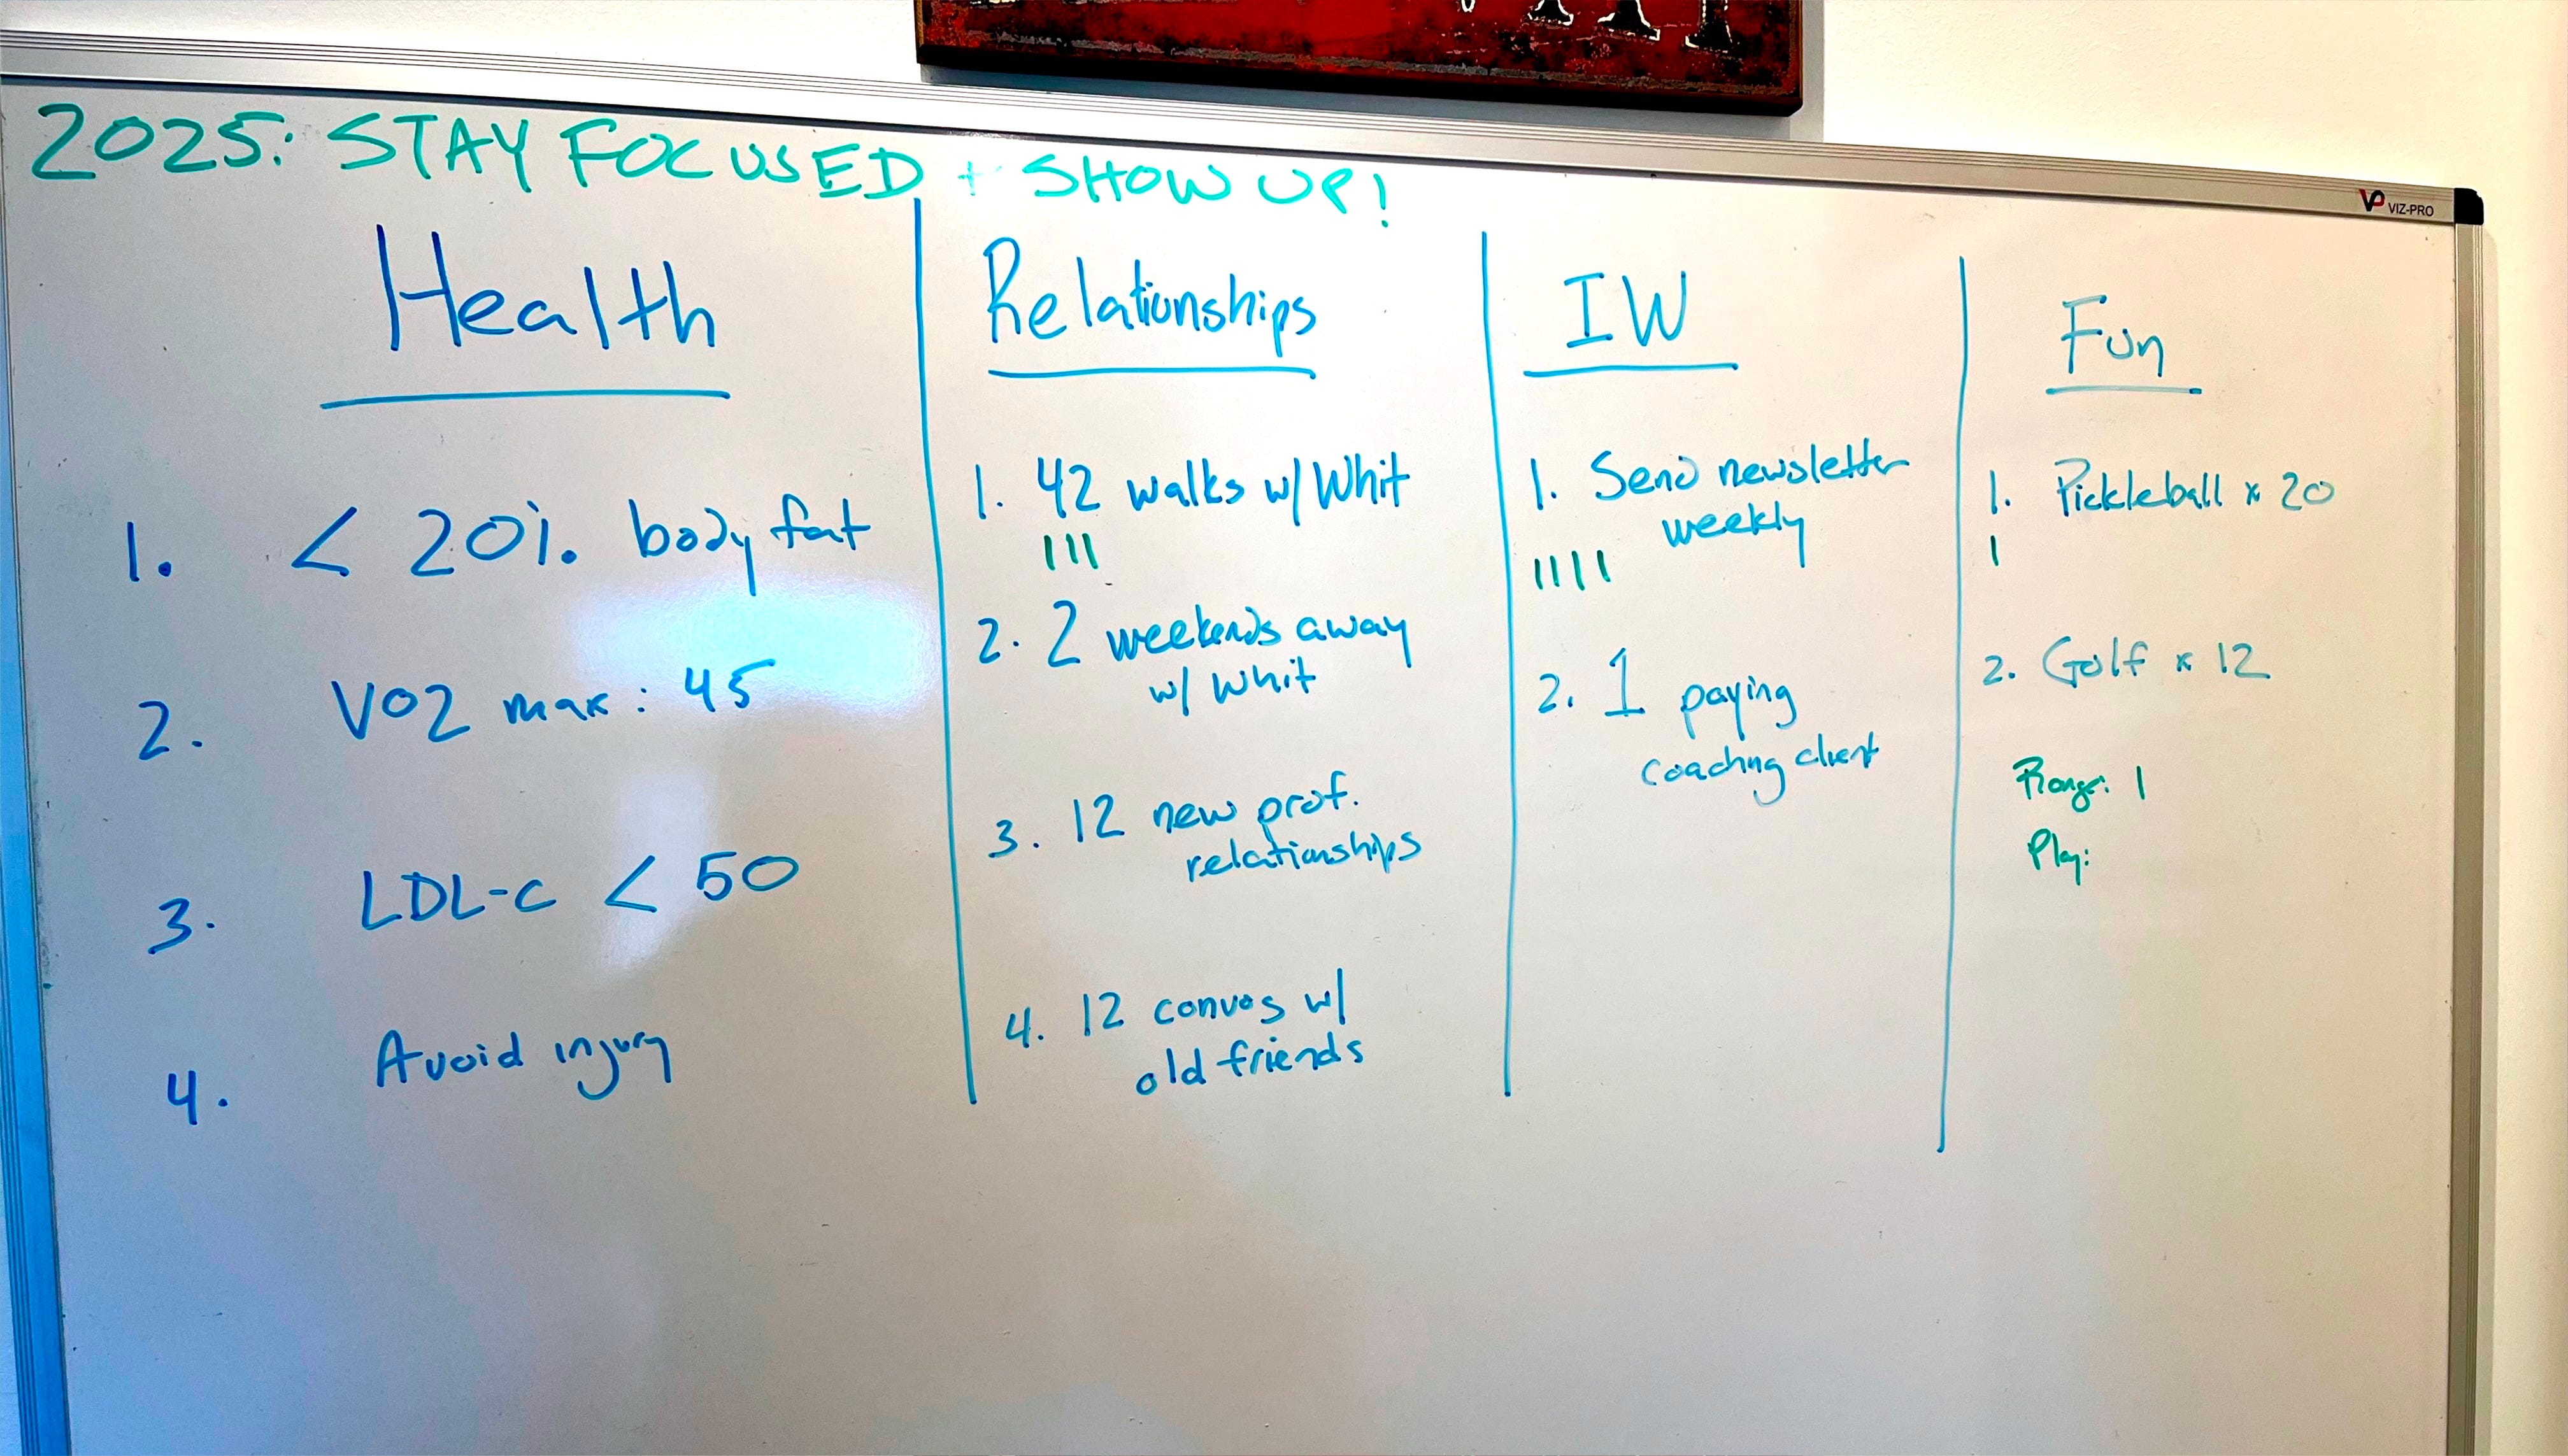 2025: STAY FOCUSED + SHOW UP!
VP VIZ-PRO
Health
1. < 20% body fat
2. VO2 max: 45
3. LDL-C < 50
4. Avoid injury
Relationships
1. 42 walks w/ Whit
III
2. 2 weekends away
w/ Whit
3. 12 new prof.
relationships
4. 12 convos w/
old friends
IW
1. Send newsletter
weekly
IIII
2. 1 paying
coaching client
Fun
1. Pickleball x 20
I
2. Golf x 12
Range: I
Play: